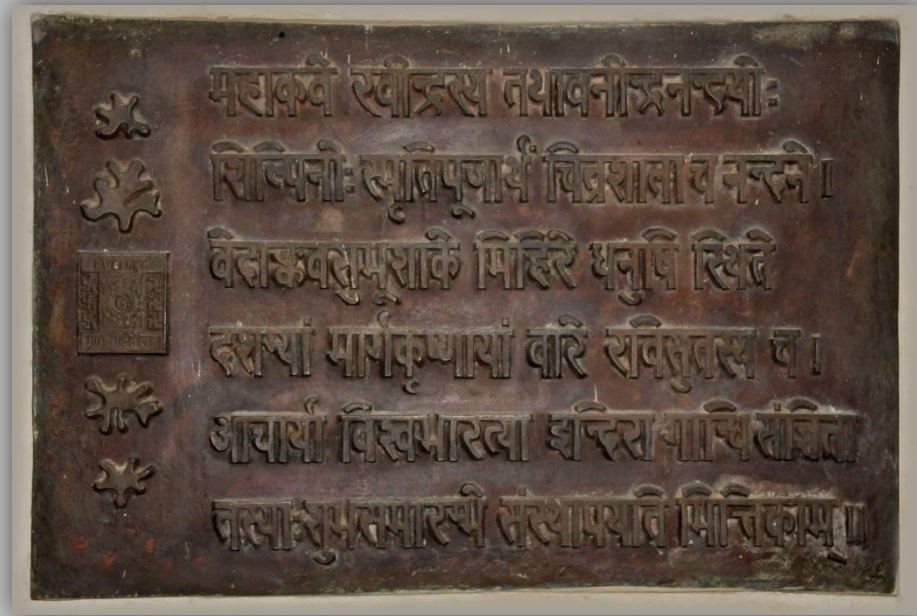 महाकवे रवीन्द्रस्य तथावनीन्द्रनन्दयोः
शिल्पिनोः स्मृतिपूजार्थं चित्रशाला च नन्दने।
वेदाङ्कवसुभूशाके मिहिरे धनुषि स्थिते
दशम्यां मार्गकृष्णायां वारे रविसुतस्य च।
आचार्या विश्वभारत्या इन्दिरा गान्धि संज्ञिता
तस्याः शुभसमारम्भे संस्थापयति भित्तिकाम्॥